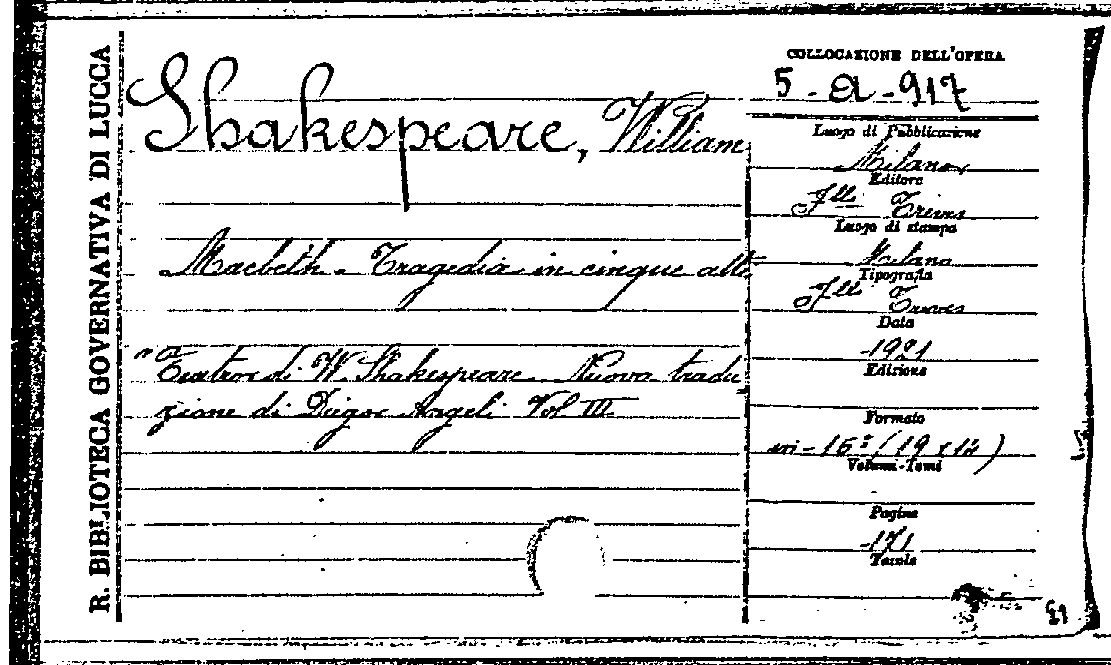 R. BIBLIOTECA GOVERNATIVA DI LUCCA
Shakespeare, William
Macbeth - Tragedia in cinque atti
"Teatro di W. Shakespeare. Nuova tradu-
zione di Diego Angeli Vol III
COLLOCAZIONE DELL'OPERA
5 - a - 917
Luogo di Pubblicazione
Milano
Editore
F.lli Treves
Luogo di stampa
Milano
Tipografia
F.lli Treves
Data
1921
Edizione
Formato
in-16° (19 x 12)
Volumi-Tomi
Pagine
171
Tavole